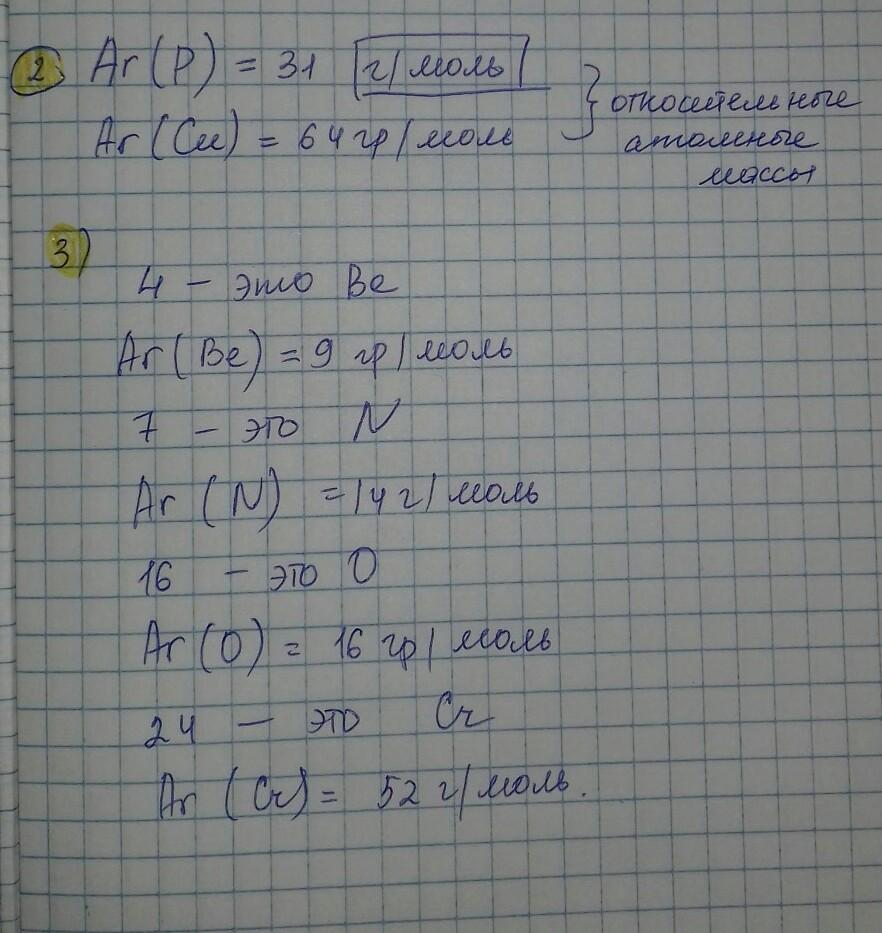 2 Ar(P) = 31 г/моль
Ar(Cu) = 64 гр/моль } относительные
атомные
массы
3)
4 - это Be
Ar(Be) = 9 гр/моль
7 - это N
Ar (N) = 14 г/моль
16 - это O
Ar(O) = 16 гр/моль
24 - это Cr
Ar (Cr) = 52 г/моль.